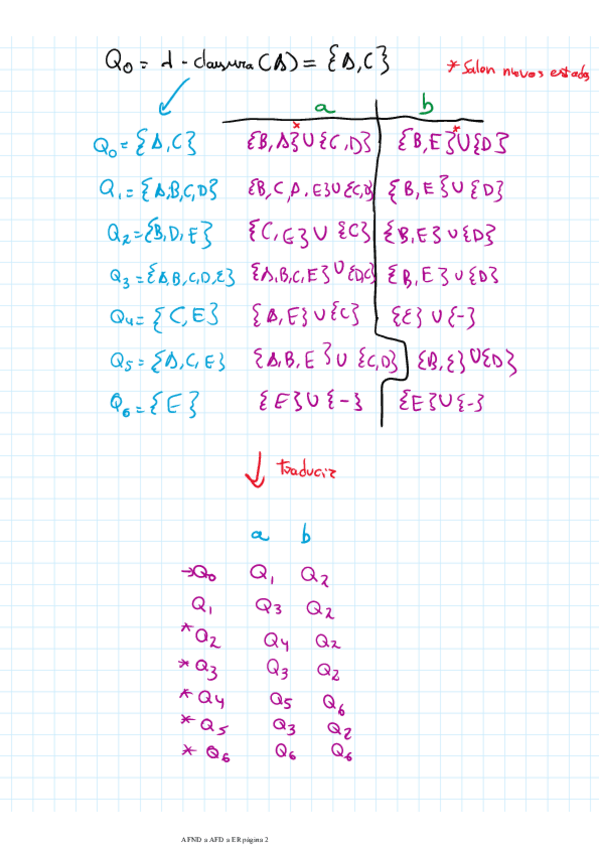 Q₀ = λ - clausura(A) = {A,C}
* Salen nuevos estados
a b
Q₀ = {A,C} {B,A}∪{C,D} {B,E}∪{D}
Q₁ = {A,B,C,D} {B,C,A,E}∪{C,D} {B,E}∪{D}
Q₂ = {B,D,E} {C,E}∪{C} {B,E}∪{D}
Q₃ = {A,B,C,D,E} {A,B,C,E}∪{D,C} {B,E}∪{D}
Q₄ = {C,E} {A,E}∪{C} {E}∪{-}
Q₅ = {A,C,E} {A,B,E}∪{C,D} {B,E}∪{D}
Q₆ = {E} {E}∪{-} {E}∪{-}
↓ traducir
a b
→Q₀ Q₁ Q₂
Q₁ Q₃ Q₂
*Q₂ Q₄ Q₂
*Q₃ Q₃ Q₂
*Q₄ Q₅ Q₆
*Q₅ Q₃ Q₂
*Q₆ Q₆ Q₆
AFND a AFD a ER página 2